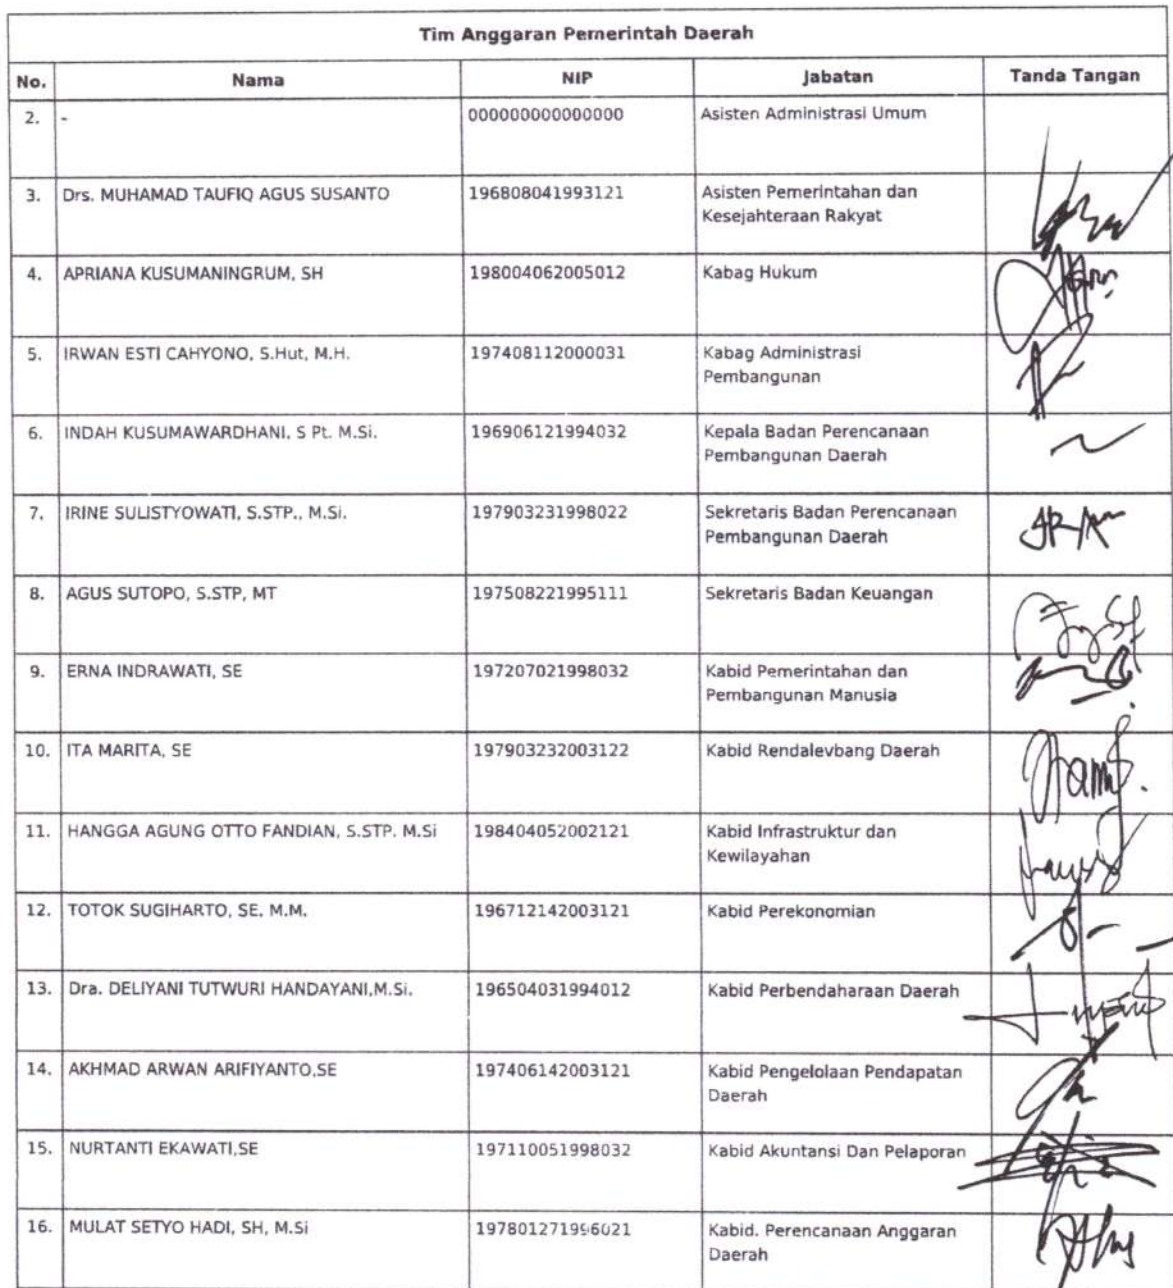 Tim Anggaran Pemerintah Daerah
No. Nama NIP Jabatan Tanda Tangan
2. - 000000000000000 Asisten Administrasi Umum
3. Drs. MUHAMAD TAUFIQ AGUS SUSANTO 196808041993121 Asisten Pemerintahan dan
Kesejahteraan Rakyat
4. APRIANA KUSUMANINGRUM, SH 198004062005012 Kabag Hukum
5. IRWAN ESTI CAHYONO, S.Hut, M.H. 197408112000031 Kabag Administrasi
Pembangunan
6. INDAH KUSUMAWARDHANI, S Pt. M.Si. 196906121994032 Kepala Badan Perencanaan
Pembangunan Daerah
7. IRINE SULISTYOWATI, S.STP., M.Si. 197903231998022 Sekretaris Badan Perencanaan
Pembangunan Daerah
8. AGUS SUTOPO, S.STP, MT 197508221995111 Sekretaris Badan Keuangan
9. ERNA INDRAWATI, SE 197207021998032 Kabid Pemerintahan dan
Pembangunan Manusia
10. ITA MARITA, SE 197903232003122 Kabid Rendalevbang Daerah
11. HANGGA AGUNG OTTO FANDIAN, S.STP. M.Si 198404052002121 Kabid Infrastruktur dan
Kewilayahan
12. TOTOK SUGIHARTO, SE. M.M. 196712142003121 Kabid Perekonomian
13. Dra. DELIYANI TUTWURI HANDAYANI,M.Si. 196504031994012 Kabid Perbendaharaan Daerah
14. AKHMAD ARWAN ARIFIYANTO,SE 197406142003121 Kabid Pengelolaan Pendapatan
Daerah
15. NURTANTI EKAWATI,SE 197110051998032 Kabid Akuntansi Dan Pelaporan
16. MULAT SETYO HADI, SH, M.Si 197801271996021 Kabid. Perencanaan Anggaran
Daerah